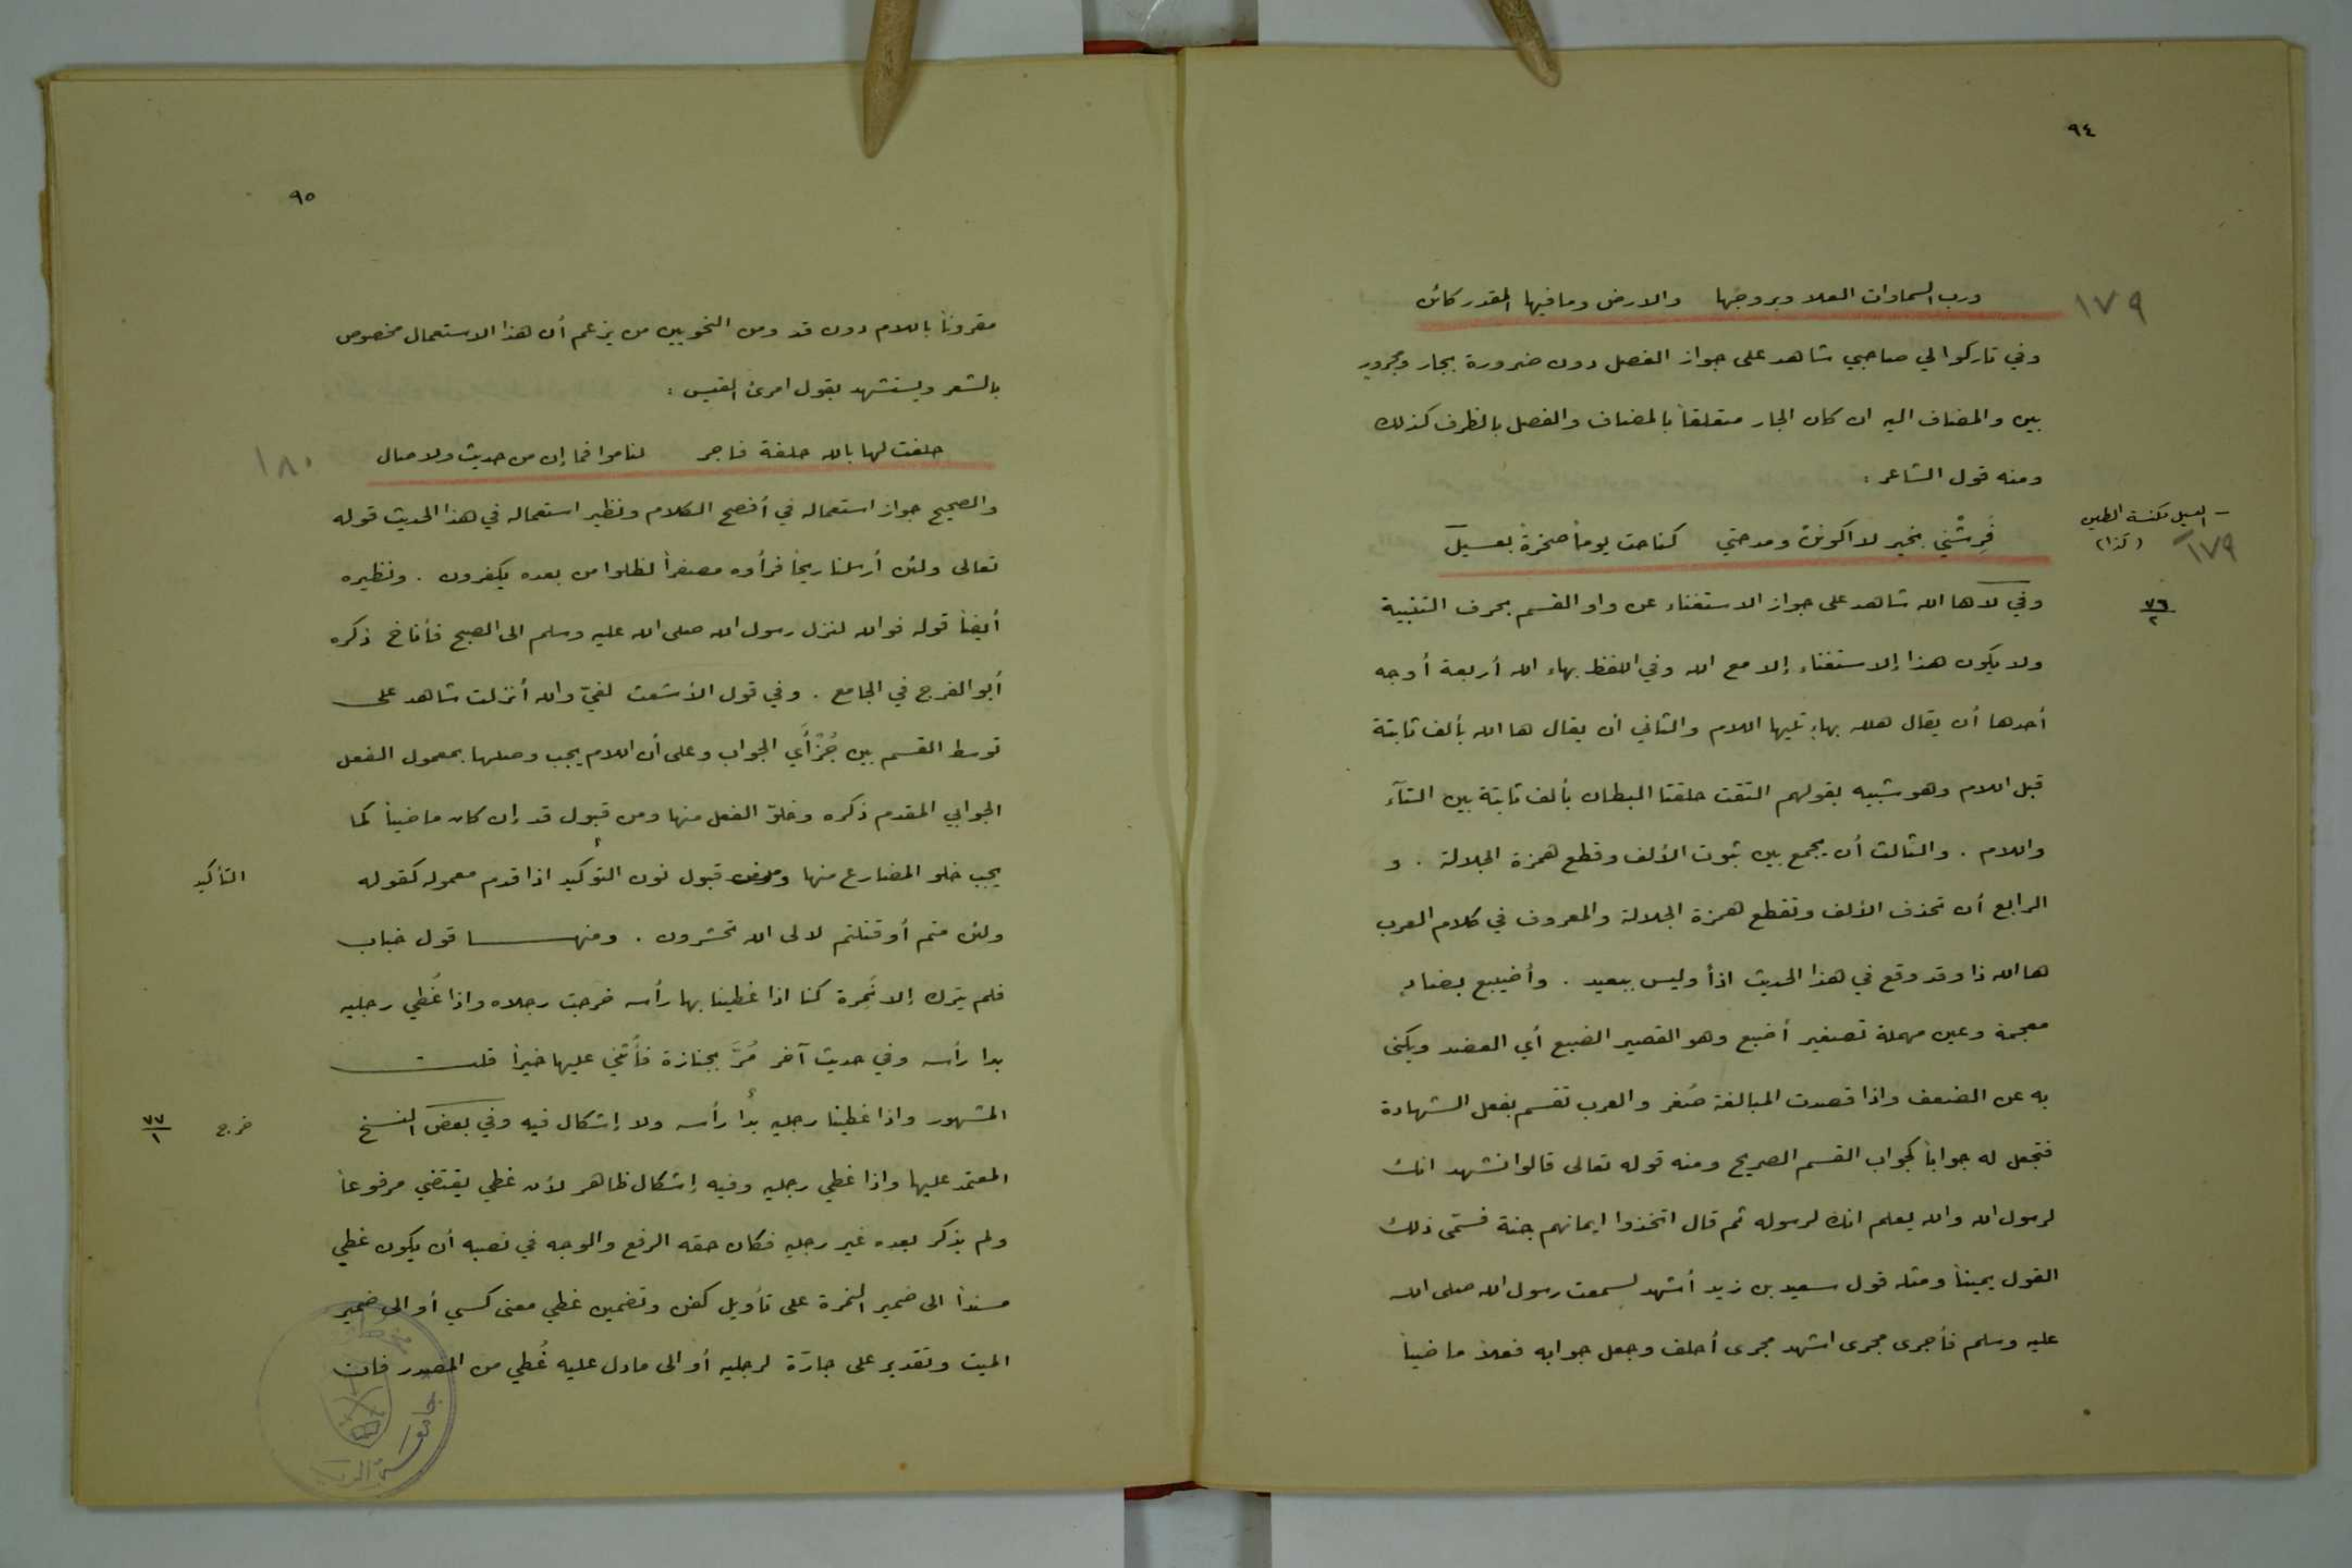 ٩٤
ورب السماوات العلا وبروجها والارض وما فيها المقدر كائن
١٧٩
وفي تاركوا لي صاحبي شاهد على جواز الفصل دون ضرورة بجار ومجرور
بين والمضاف اليه ان كان الجار متعلقاً بالمضاف والفصل بالظرف كذلك
ومنه قول الشاعر :
فَرِشْني بخير لا اكونن ومدحتي كناحت يوماً صخرة بعسيل
ـ العسيل مكنسة الطيب
(كذا)
١٧٩
وفي لاها الله شاهد على جواز الاستغناء عن واو القسم بحرف التنبيه
٧٦
٢
ولا يكون هذا إلا ستغناء إلا مع الله وفي اللفظ بهاء الله أربعة أوجه
أحدها أن يقال هلله بهاءٍ تليها اللام والثاني أن يقال ها الله بألف ثابتة
قبل اللام وهو شبيه بقولهم التقت حلقتا البطان بألف ثابتة بين التآء
واللام . والثالث أن يجمع بين ثبوت الألف وقطع همزة الجلالة . و
الرابع أن تحذف الألف وتقطع همزة الجلالة والمعروف في كلام العرب
ها الله ذا وقد وقع في هذا الحديث اذاً وليس ببعيد . وأضيبع بضادٍ
معجمة وعين مهملة تصغير أضبع وهو القصير الضبع أي العضد ويكنى
به عن الضعف واذا قصدت المبالغة صُغر والعرب تقسم بفعل الشهادة
فتجعل له جواباً كجواب القسم الصريح ومنه قوله تعالى قالوا نشهد انك
لرسول الله والله يعلم انك لرسوله ثم قال اتخذوا ايمانهم جنة فسمّى ذلك
القول يميناً ومثله قول سعيد بن زيد أشهد لسمعت رسول الله صلى الله
عليه وسلم فأجرى مجرى اشهد مجرى أحلف وجعل جوابه فعلاً ماضياً
٩٥
مقروناً باللام دون قد ومن النحويين من يزعم أن هذا الاستعمال مخصوص
بالشعر ويستشهد بقول امرئ القيس :
حلفت لها بالله حلفة فاجر لناموا فما إن من حديث ولا صال
١٨٠
والصحيح جواز استعماله في أفصح الكلام ونظير استعماله في هذا الحديث قوله
تعالى ولئن أرسلنا ريحاً فرأوه مصفراً لظلوا من بعده يكفرون . ونظيره
أيضاً قوله فوالله لنزل رسول الله صلى الله عليه وسلم الى الصبح فأناخ ذكره
أبو الفرج في الجامع . وفي قول الأشعث لفيّ والله أنزلت شاهد على
توسط القسم بين جُزْأَي الجواب وعلى أن اللام يجب وصلها بمعمول الفعل
الجوابي المقدم ذكره وخلوّ الفعل منها ومن قبول قد إن كان ماضياً كما
يجب خلو المضارع منها ومن قبول نون التوكيد اذا قدم معموله كقوله
التأكيد
ولئن متم أو قتلتم لالى الله تحشرون . ومنها قول خباب
فلم يترك إلا نَمِرة كنا اذا غطينا بها رأسه خرجت رجلاه واذا غُطي رجليه
بدا رأسه وفي حديث آخر مُرَّ بجنازة فأُثني عليها خيراً قلت
المشهور واذا غطينا رجليه بدا رأسه ولا إشكال فيه وفي بعض النسخ
خرج
٧٧
١
المعتمد عليها واذا غطي رجليه وفيه إشكال ظاهر لأن غطي يقتضي مرفوعاً
ولم يذكر بعده غير رجليه فكان حقه الرفع والوجه في نصبه أن يكون غطي
مسنداً الى ضمير النمرة على تأويل كفن وتضمين غطي معنى كسي أو الى ضمير
الميت وتقدير على جارّة لرجليه أو الى ما دل عليه غُطي من المصدر فان
جامعة الرياض